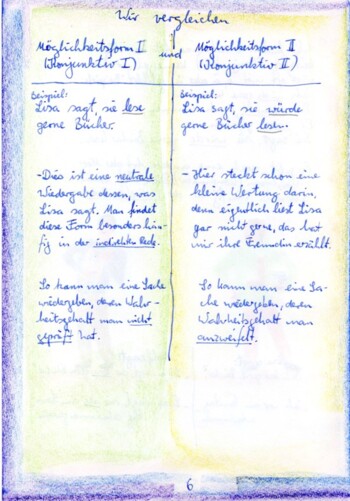 Wir vergleichen
Möglichkeitsform I
(Konjunktiv I)
und
Möglichkeitsform II
(Konjunktiv II)
Beispiel:
Lisa sagt, sie lese
gerne Bücher.
- Dies ist eine neutrale
Wiedergabe dessen, was
Lisa sagt. Man findet
diese Form besonders häu-
fig in der indirekten Rede.
So kann man eine Sache
wiedergeben, deren Wahr-
heitsgehalt man nicht
geprüft hat.
Beispiel:
Lisa sagt, sie würde
gerne Bücher lesen.
- Hier steckt schon eine
kleine Wertung darin,
denn eigentlich liest Lisa
gar nicht gerne, das hat
mir ihre Freundin erzählt.
So kann man eine Sa-
che wiedergeben, deren
Wahrheitsgehalt man
anzweifelt.
6